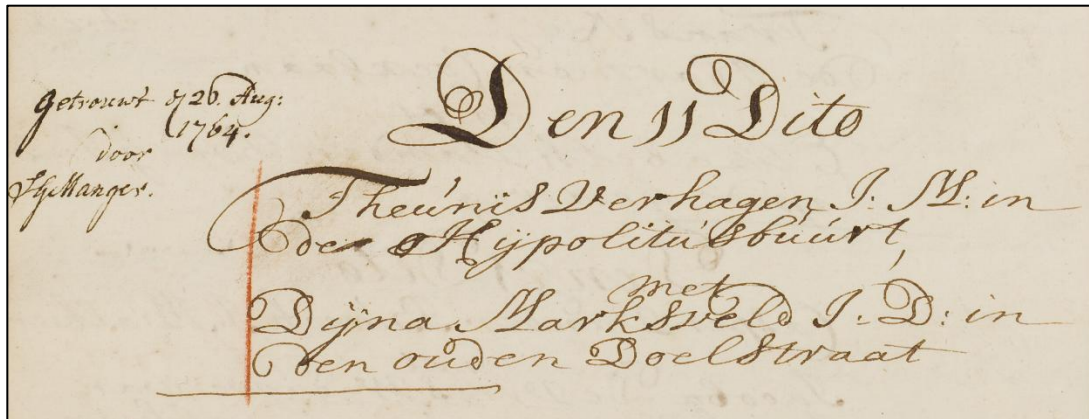 Getrouwt d 26. Aug:
1764.
door
Den 11 Dito
Theúnis Verhagen J: M: in
de Hÿpolitúsbúúrt,
met
Dÿna Marksveld J: D: in
den ouden Doelstraat